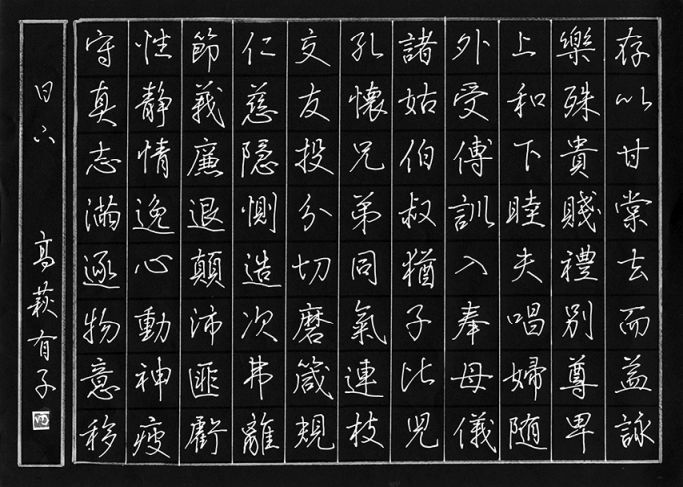 存以甘棠去而益詠
樂殊貴賤禮別尊卑
上和下睦夫唱婦随
外受傅訓入奉母儀
諸姑伯叔猶子比児
孔懐兄弟同氣連枝
交友投分切磨箴規
仁慈隠惻造次弗離
節義廉退顛沛匪虧
性静情逸心動神疲
守真志満逐物意移
日六
高萩有子